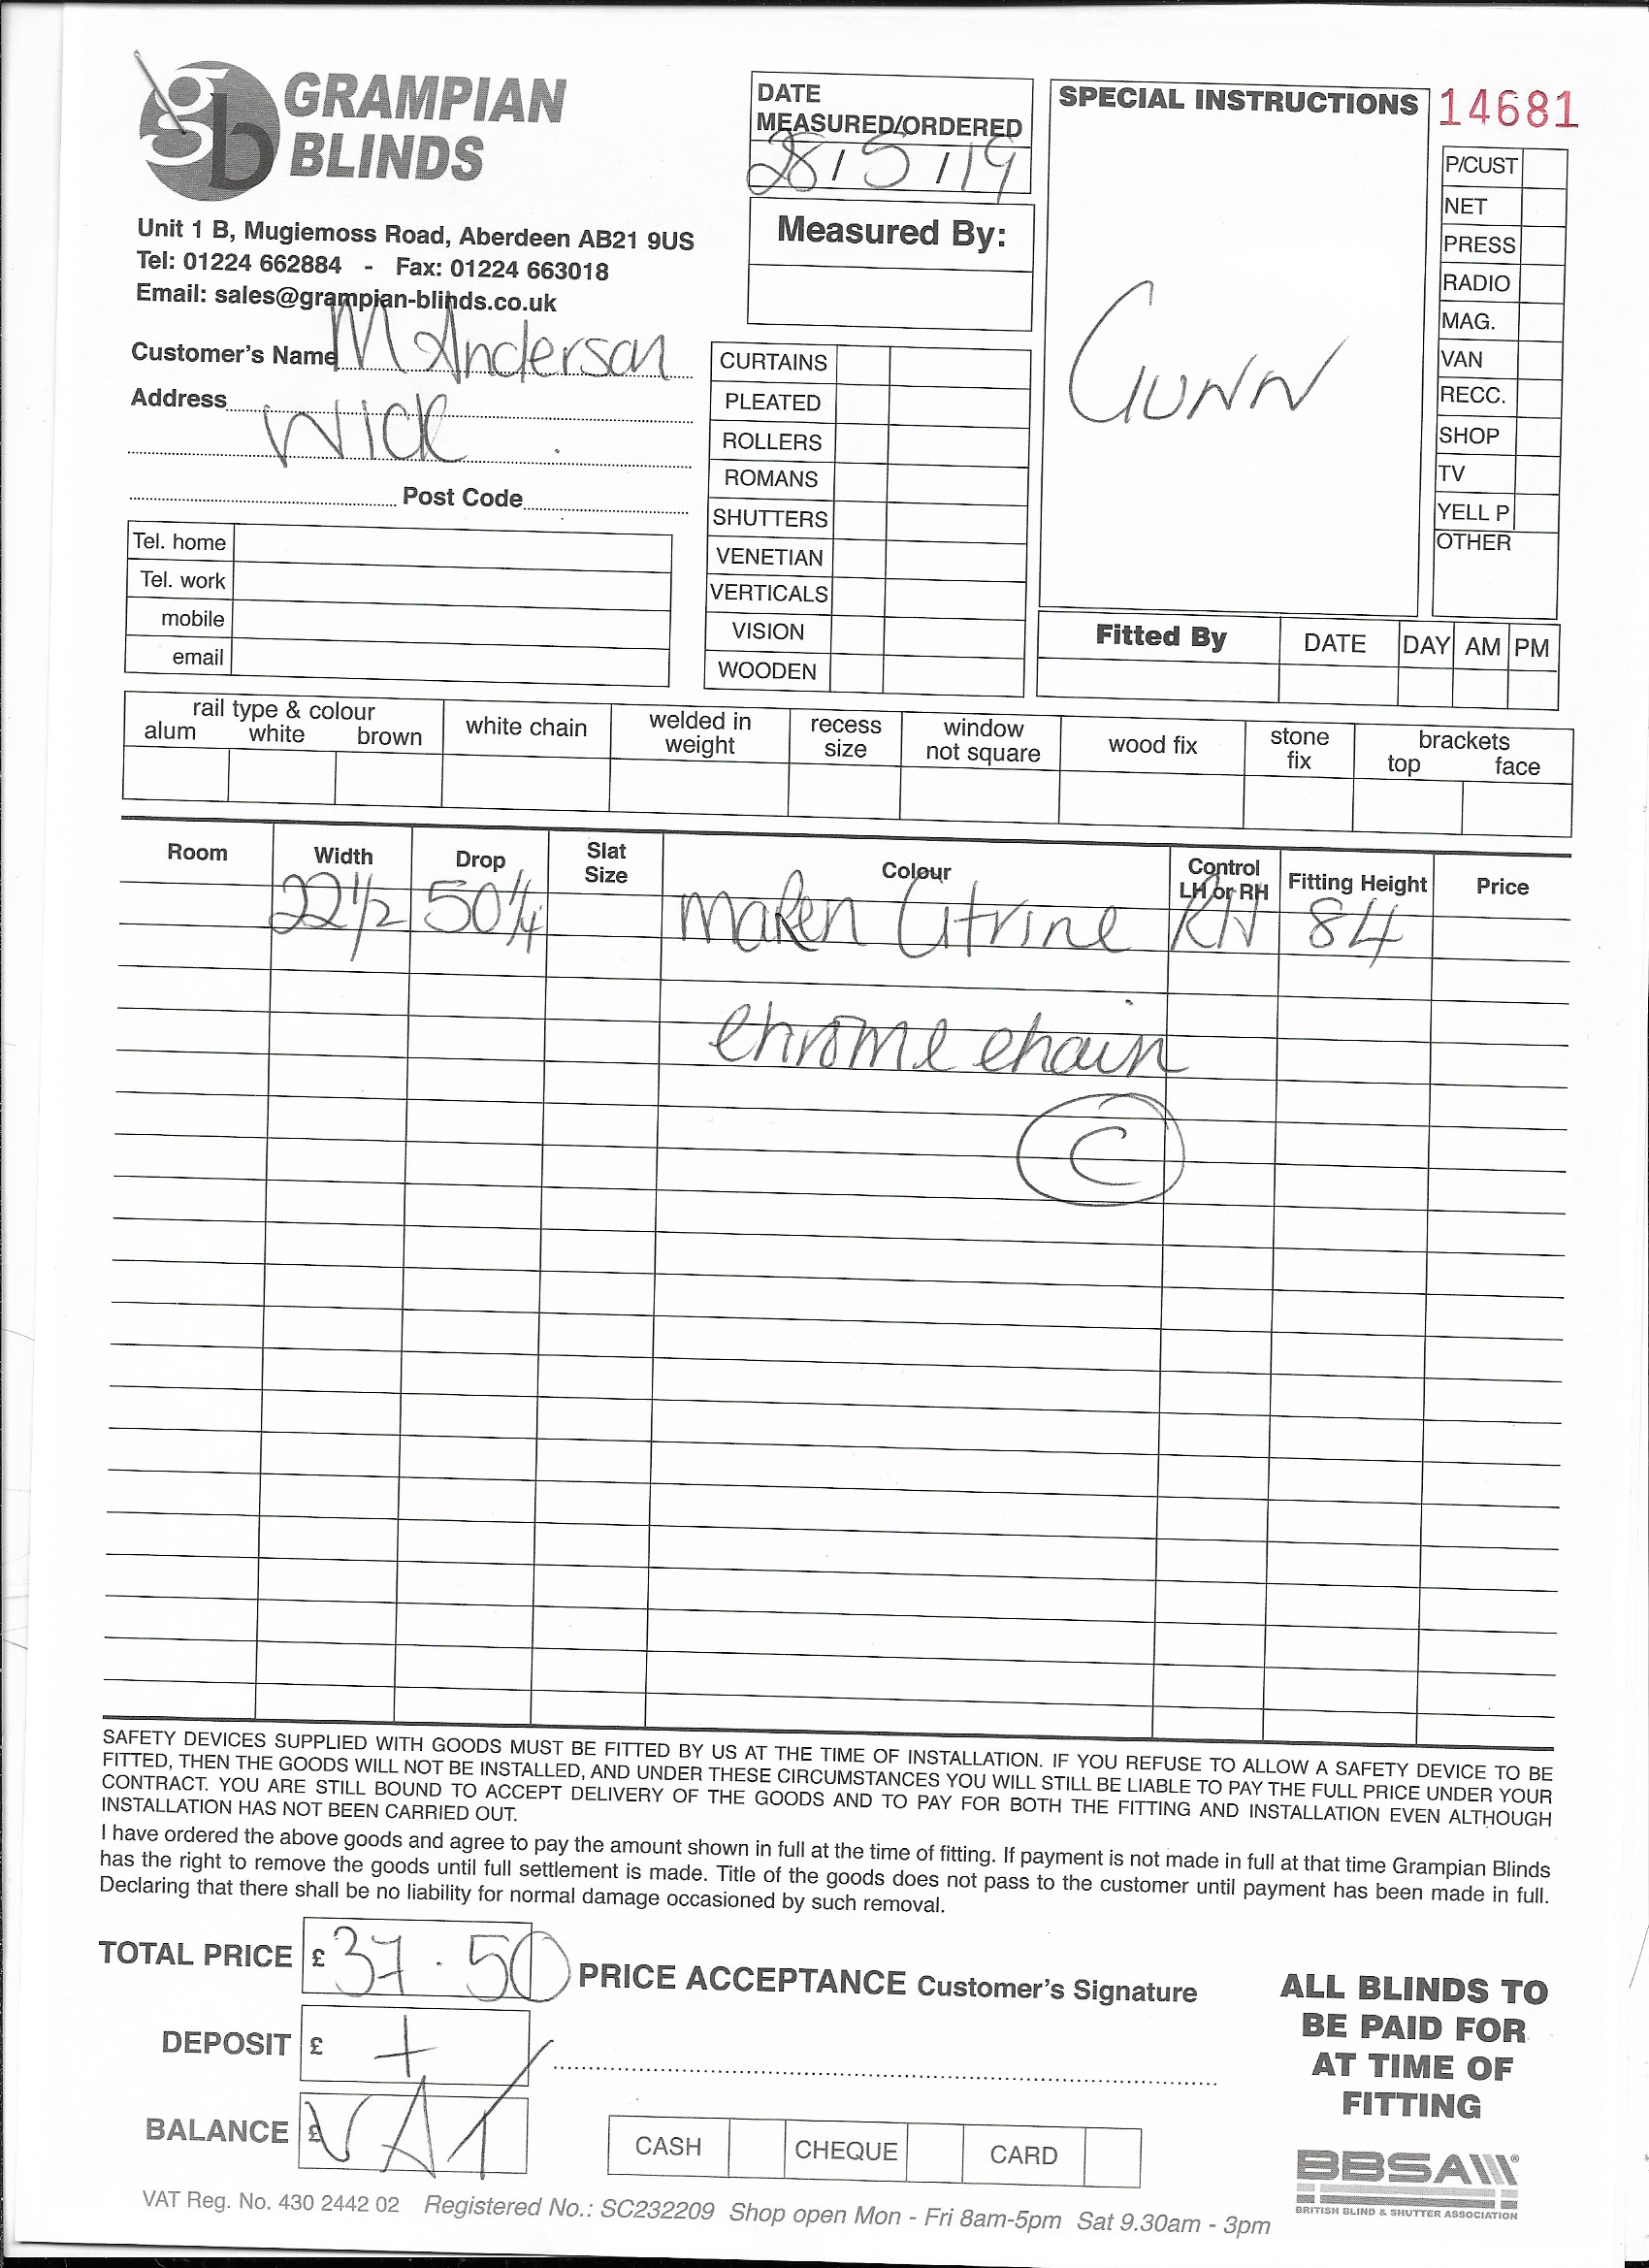 gb GRAMPIAN
BLINDS
Unit 1 B, Mugiemoss Road, Aberdeen AB21 9US
Tel: 01224 662884 - Fax: 01224 663018
Email: sales@grampian-blinds.co.uk
Customer's Name M Anderson
Address Wick
Post Code
Tel. home
Tel. work
mobile
email
DATE
MEASURED/ORDERED
28/5/19
Measured By:
CURTAINS
PLEATED
ROLLERS
ROMANS
SHUTTERS
VENETIAN
VERTICALS
VISION
WOODEN
SPECIAL INSTRUCTIONS
GUNN
14681
P/CUST
NET
PRESS
RADIO
MAG.
VAN
RECC.
SHOP
TV
YELL P
OTHER
Fitted By DATE DAY AM PM
rail type & colour
alum white brown
white chain
welded in
weight
recess
size
window
not square
wood fix
stone
fix
brackets
top face
Room Width Drop Slat Size Colour Control LH or RH Fitting Height Price
22 1/2 50 1/4 Maren Citrine RH 84
chrome chain
C
SAFETY DEVICES SUPPLIED WITH GOODS MUST BE FITTED BY US AT THE TIME OF INSTALLATION. IF YOU REFUSE TO ALLOW A SAFETY DEVICE TO BE
FITTED, THEN THE GOODS WILL NOT BE INSTALLED, AND UNDER THESE CIRCUMSTANCES YOU WILL STILL BE LIABLE TO PAY THE FULL PRICE UNDER YOUR
CONTRACT. YOU ARE STILL BOUND TO ACCEPT DELIVERY OF THE GOODS AND TO PAY FOR BOTH THE FITTING AND INSTALLATION EVEN ALTHOUGH
INSTALLATION HAS NOT BEEN CARRIED OUT.
I have ordered the above goods and agree to pay the amount shown in full at the time of fitting. If payment is not made in full at that time Grampian Blinds
has the right to remove the goods until full settlement is made. Title of the goods does not pass to the customer until payment has been made in full.
Declaring that there shall be no liability for normal damage occasioned by such removal.
TOTAL PRICE £ 37.50
PRICE ACCEPTANCE Customer's Signature
DEPOSIT £ +
BALANCE £ VAT
CASH CHEQUE CARD
ALL BLINDS TO
BE PAID FOR
AT TIME OF
FITTING
BBSA
BRITISH BLIND & SHUTTER ASSOCIATION
VAT Reg. No. 430 2442 02 Registered No.: SC232209 Shop open Mon - Fri 8am-5pm Sat 9.30am - 3pm